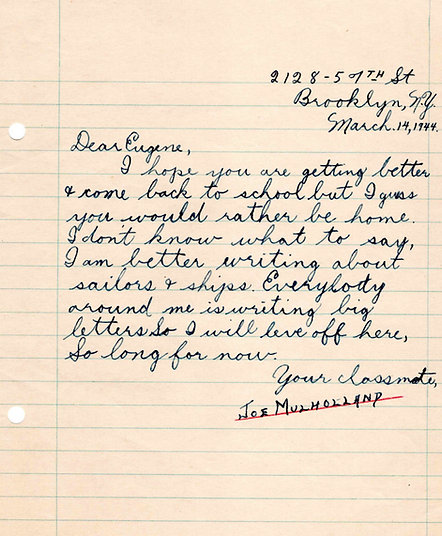 2128-57TH St
Brooklyn, N.Y.
March.14,1944.
Dear Eugene,
I hope you are getting better
& come back to school but I guss
you would rather be home.
I don't know what to say,
I am better writing about
sailors & ships. Everybody
around me is writing big
letters So I will leve off here,
So long for now.
Your classmate,
JOE MULHOLLAND